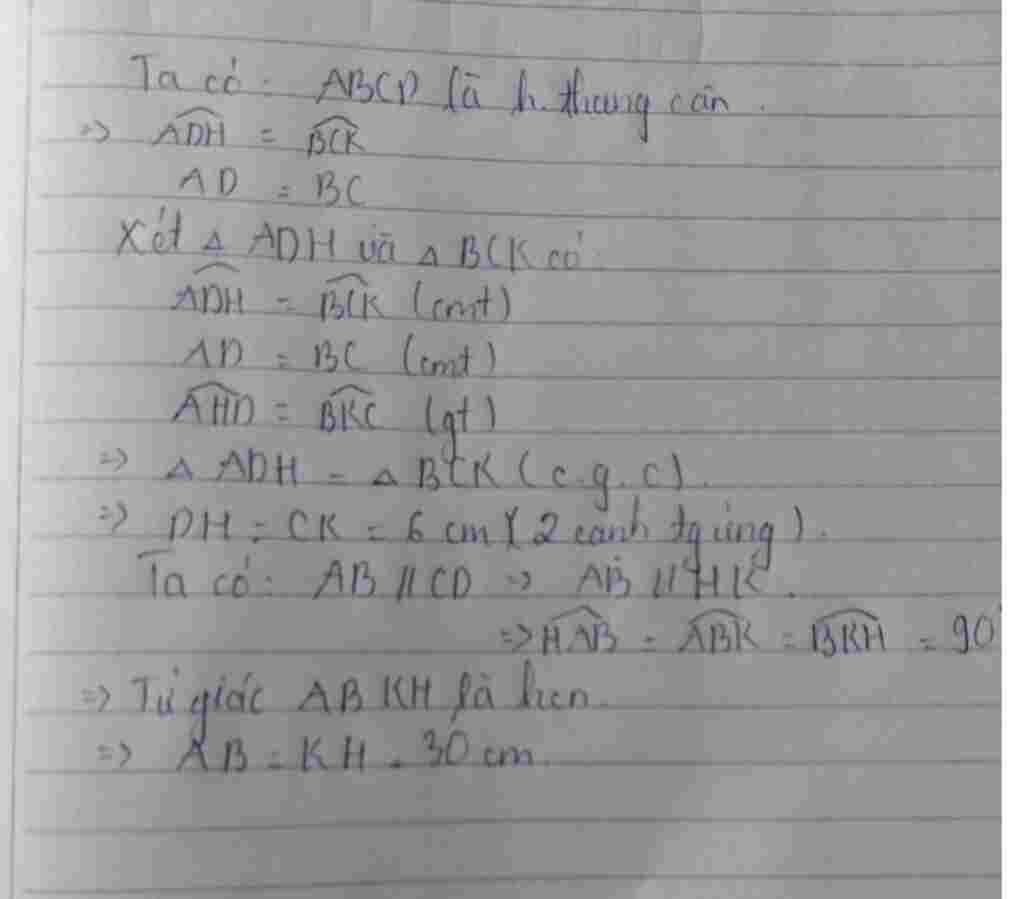 Ta có: ABCD là h. thang cân.
=> ADH = BCK
AD = BC
Xét △ ADH và △ BCK có:
ADH = BCK (cmt)
AD = BC (cmt)
AHD = BKC (gt)
=> △ ADH = △ BCK (c.g.c).
=> DH = CK = 6 cm (2 cạnh tg ứng).
Ta có: AB // CD => AB // HK.
=> HAB = ABK = BKH = 90°
=> Tứ giác ABKH là hcn.
=> AB = KH = 30 cm.